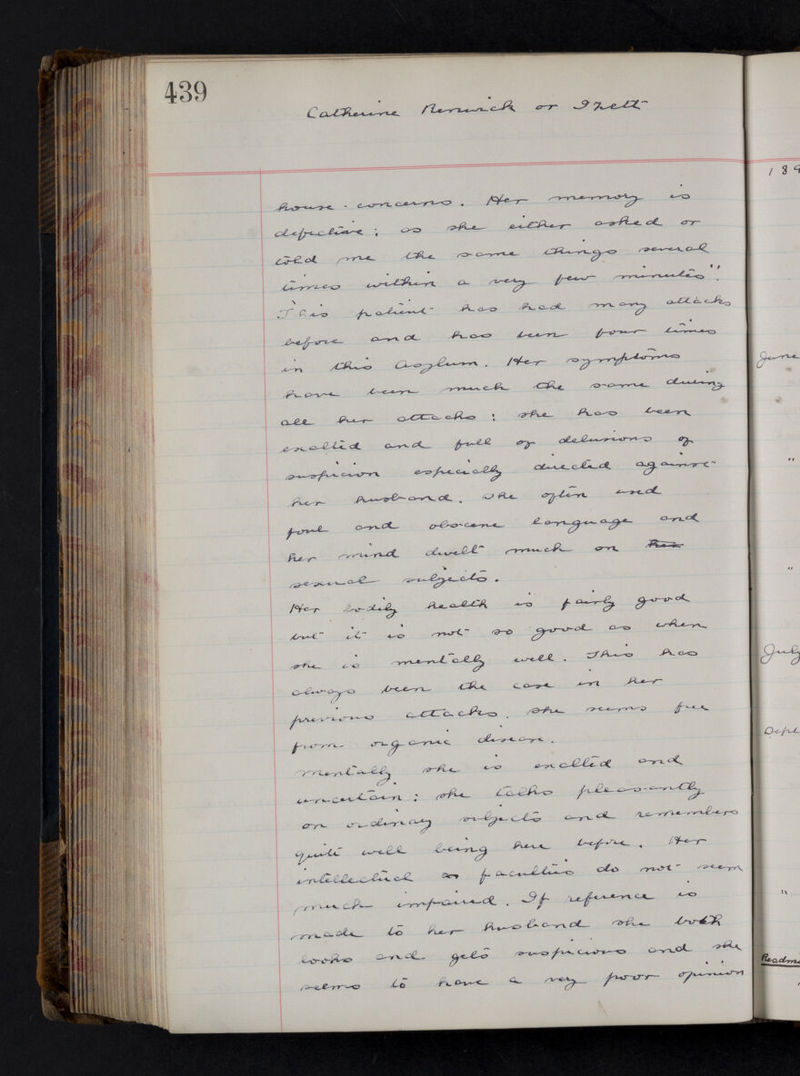 439
Catherine Renwick or Izett
house-concerns. Her memory is
defective; as she either asked or
told me the same things several
times within a very few minutes".
This patient has had many attacks
before and has been four times
in this Asylum. Her symptoms
have been much the same during
all her attacks: she has been
exalted and full of delusions of
suspicion especially directed against
her husband. She often used
foul and obscene language and
her mind dwelt much on her
sexual subjects.
Her bodily health is fairly good
but it is not so good as when
she is mentally well. This has
always been the case in her
previous attacks. She seems free
from organic disease.
Mentally she is exalted and
uncertain; she talks pleasantly
on ordinary subjects and remembers
quite well being here before. Her
intellectual faculties do not seem
much impaired. If reference is
made to her husband she both
looks and gets suspicious and she
seems to have a very poor opinion
189
June
"
"
July
Sept
"
Readm